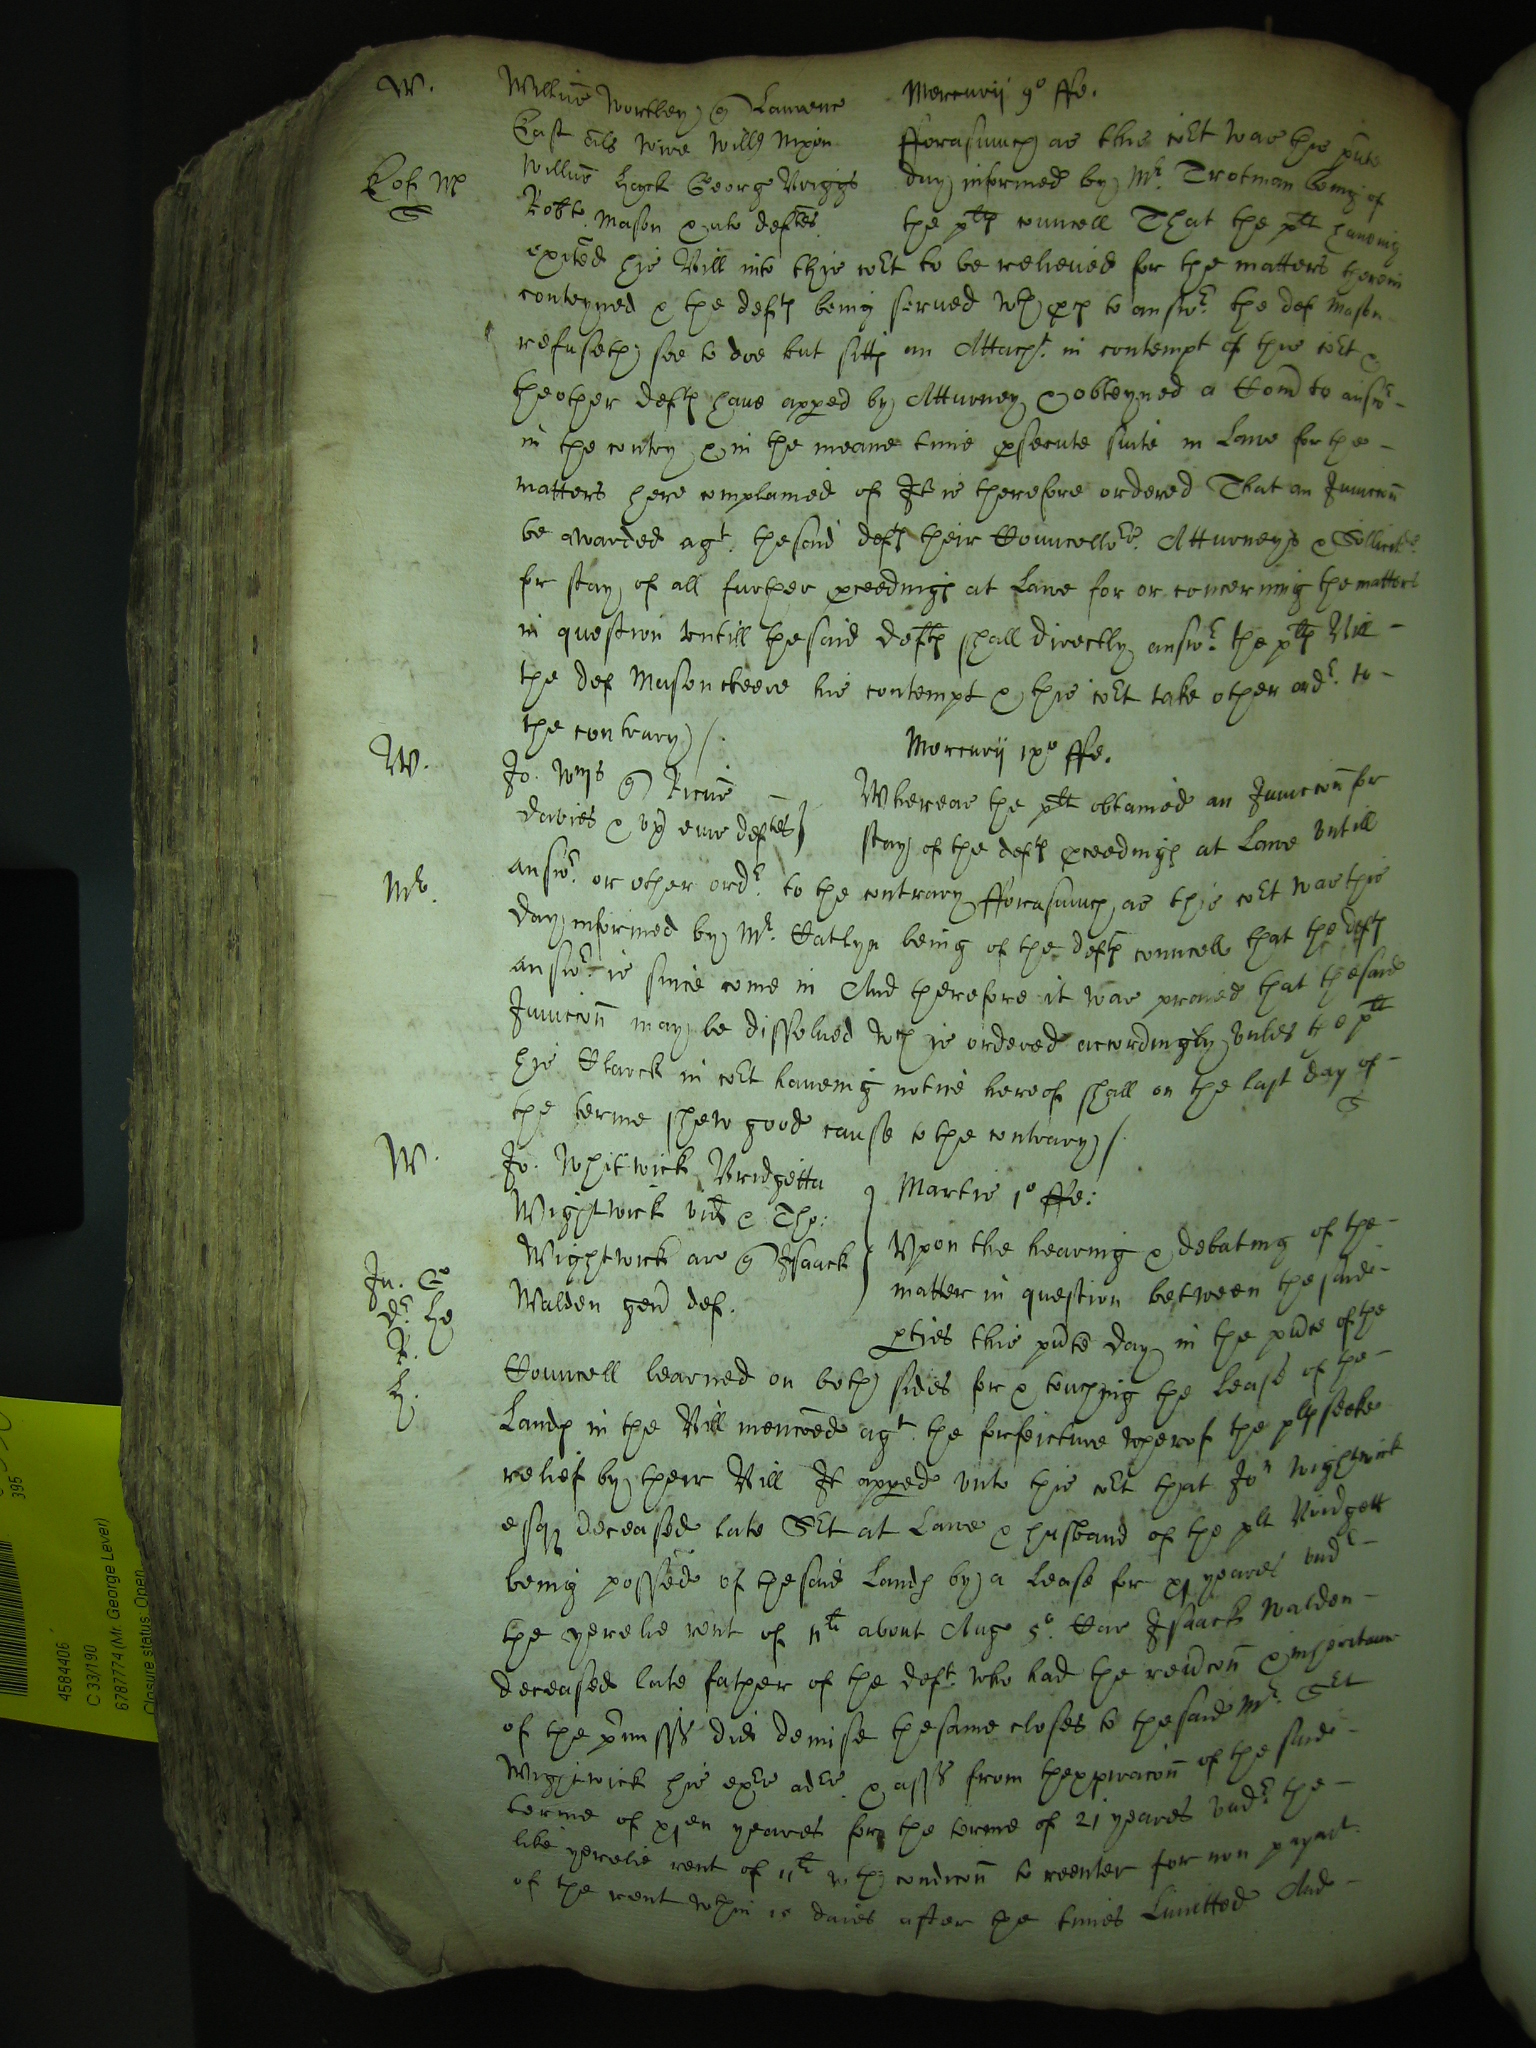 W.
Willm̃ Wortley q̃ Laurenc
East als Wire Willm̃ Nixon
Willm̃ Hack George Briggs
Robtũ Mason & als deftes.
Mercurij 9º ffe.
fforasmuch as this co͠rt was this p͠nte
day informed by Mr. Trotman being of
the plts councell That the plt haveing
exited his Bill into this co͠rt to be relieved for the matters therein
conteyned & the defts being served wth p͠cs to answr. the def Mason
refuseth soe to doe but sitts an Attachmt. in contempt of this co͠rt &
theother defts have app͠ed by Atturney & obteyned a Com͠ to answr –
in the contry & in the meane time p͠secute suite in Lawe for the –
matters here complained of It is therefore ordered That an Iniunccon͠
be awarded agt. thesaid defts their Councellors. Atturneys & Sollicitrs.
for stay of all further p͠ceedings at Lawe for or concerning the matters
in question untill thesaid defts shall directly answr. the plts Bill –
the def Mason cleere his contempt & this co͠rt take other ordr. to –
the contrary /.
W.
Jo. Wms q̃ Ricum̃
Davies & ux͠ eius deftes
Mr.
Mercurij ixº ffe.
Whereas the plt obtained an Iniunccon͠ for
stay of the defts p͠ceedings at Lawe untill
answr. or other ordr. to the contrary fforasmuch as this co͠rt was this
day informed by Mr. Catlyn being of the defts councell that the defts
answr. is since come in And therefore it was praied that thesaid
Iniunccon͠ may be dissolved wch is ordered accordingly unles the plt
his Clarck in co͠rt haveing notice hereof shall on the last day of –
the terme shew good cause to the contrary /.
W.
Jo. Whitwick Bridgetta
Wightwick vid͠ & Tho:
Wightwick ar q̃ Isaack
Walden gen͠ def.
Martis 1º ffe:
Upon the hearing & debating of the –
matter in question between the said –
p͠ties this p͠nte day in the p͠nce of the
Councell learned on both sides for & touching the Lease of the –
Lands in the Bill menc͠oed agt the forfeiture wherof the plts seeke
relief by their Bill It app͠ed unto this co͠rt that Jon Wightwick
esq deceased late S͠rt at Lawe & husband of the plt Bridgett
being possed of thesaid Lands by a Lease for xj yeares undr –
the yerelie rent of 11li about Aug 5º. Car Isaack Walden –
deceased late father of the deft. who had the rev͠con͠ & inheritance
of the p͠miss͠s did demise thesame closes to thesaid Mr. S͠rt
Wightwick his exrs adrs. & ass͠s from thexpiracon͠ of the said –
terme of xjen yeares for the terme of 21 yeares undr. the –
like yerelie rent of 11li wth condicon͠ to reenter for non paymt.
of the rent wthin 10 daies after the times Limitted And –
4584406
C 33/190
6787774 (Mr. George Lever)
Closure status: Open
395